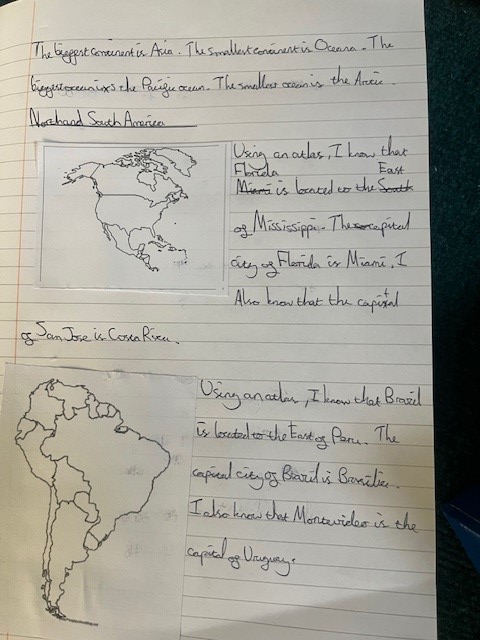 The biggest continent is Asia. The smallest continent is Oceana. The
biggest ocean is the Pacific ocean. The smallest ocean is the Arctic.
North and South America
Using an atlas, I know that
Florida East
Miami is located to the South
of Mississippi. The capital
city of Florida is Miami. I
Also know that the capital
of San Jose is Costa Rica.
Using an atlas, I know that Brazil
is located to the East of Peru. The
capital city of Brazil is Brasilia.
I also know that Montevideo is the
capital of Uruguay.